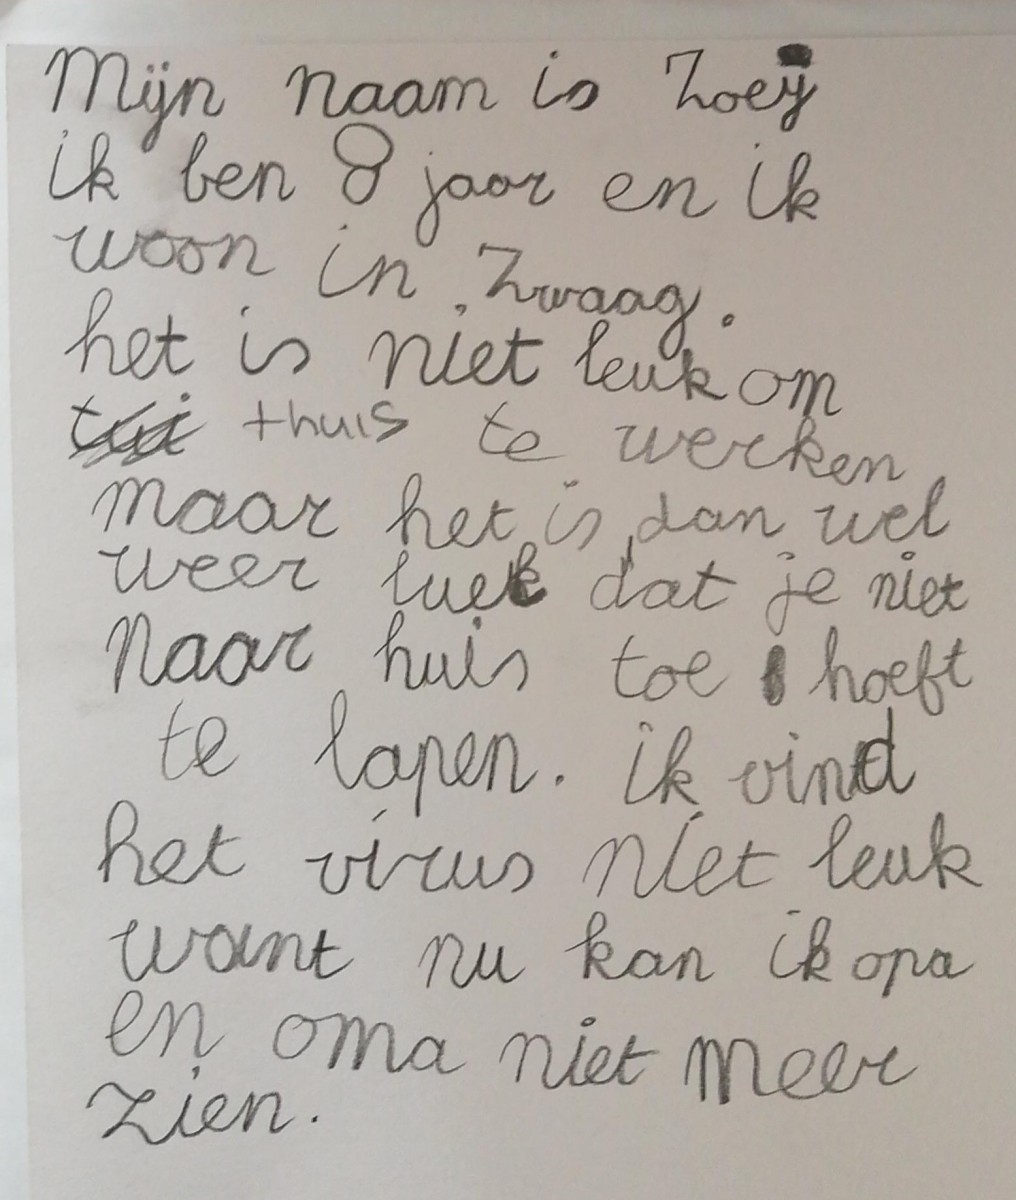 Mijn naam is Zoey
ik ben 8 jaar en ik
woon in Zwaag.
het is niet leuk om
thuis te werken
maar het is dan wel
weer luek dat je niet
Naar huis toe hoeft
te lapen. ik vind
het virus niet leuk
want nu kan ik opa
en oma niet meer
zien.